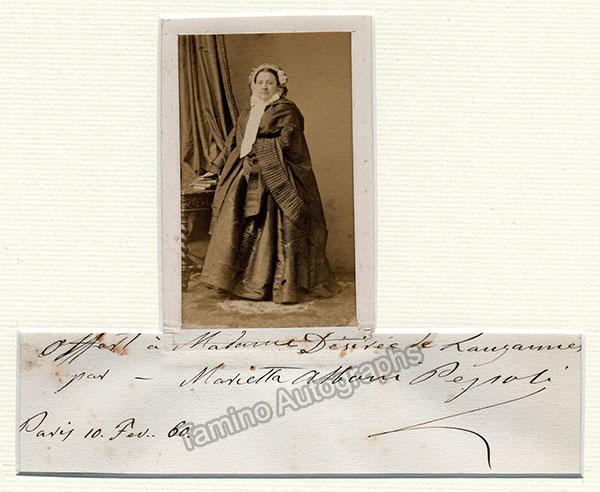 Offert à Madame Désirée de Lauzannes
par – Marietta Alboni Pepoli
Paris 10. Fev.. 60.
Tamino Autographs